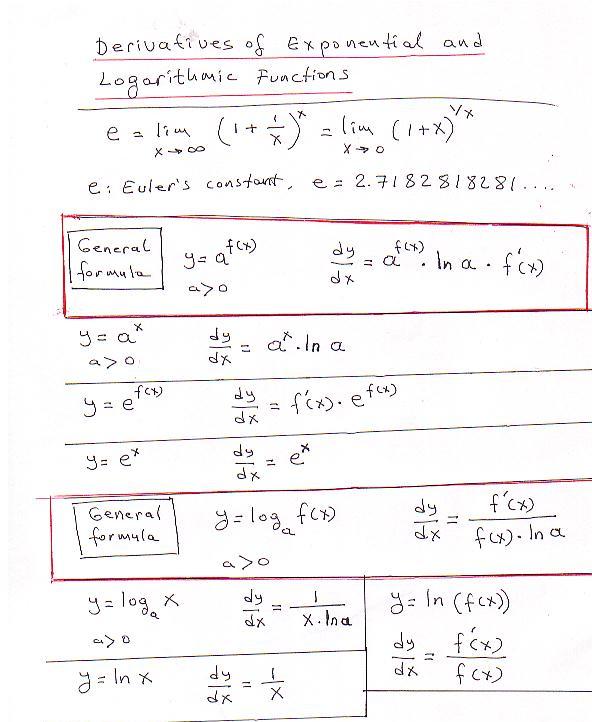 Derivatives of Exponential and
Logarithmic Functions
e = lim x→∞ (1 + 1/x)^x = lim x→0 (1+x)^1/x
e: Euler's constant, e = 2.7182818281....
General formula y = a^f(x) a>0 dy/dx = a^f(x) · ln a · f'(x)
y = a^x a>0 dy/dx = a^x · ln a
y = e^f(x) dy/dx = f'(x) · e^f(x)
y = e^x dy/dx = e^x
General formula y = log_a f(x) a>0 dy/dx = f'(x) / f(x) · ln a
y = log_a x a>0 dy/dx = 1 / x · ln a
y = ln (f(x)) dy/dx = f'(x) / f(x)
y = ln x dy/dx = 1/x